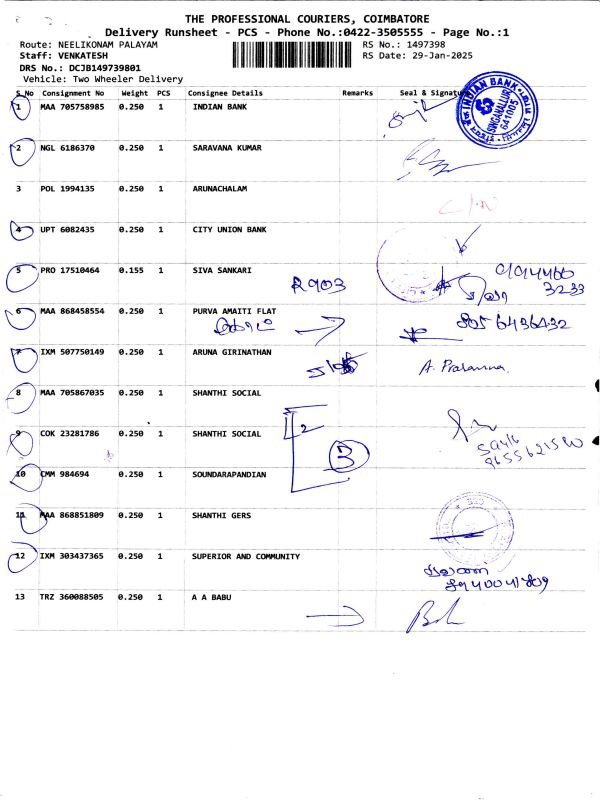 THE PROFESSIONAL COURIERS, COIMBATORE
Delivery Runsheet - PCS - Phone No.:0422-3505555 - Page No.:1
Route: NEELIKONAM PALAYAM RS No.: 1497398
Staff: VENKATESH RS Date: 29-Jan-2025
DRS No.: DCJB149739801
Vehicle: Two Wheeler Delivery
S No Consignment No Weight PCS Consignee Details Remarks Seal & Signature
1 MAA 705758985 0.250 1 INDIAN BANK
INDIAN BANK
SINGANALLUR
641005
2 NGL 6186370 0.250 1 SARAVANA KUMAR
3 POL 1994135 0.250 1 ARUNACHALAM
4 UPT 6082435 0.250 1 CITY UNION BANK
5 PRO 17510464 0.155 1 SIVA SANKARI
R903
3233
6 MAA 868458554 0.250 1 PURVA AMAITI FLAT
8056436432
7 IXM 507750149 0.250 1 ARUNA GIRINATHAN
A. Prasanna
8 MAA 705867035 0.250 1 SHANTHI SOCIAL
9 COK 23281786 0.250 1 SHANTHI SOCIAL
2
3
10 CMM 984694 0.250 1 SOUNDARAPANDIAN
11 MAA 868851809 0.250 1 SHANTHI GERS
12 IXM 303437365 0.250 1 SUPERIOR AND COMMUNITY
13 TRZ 360088505 0.250 1 A A BABU